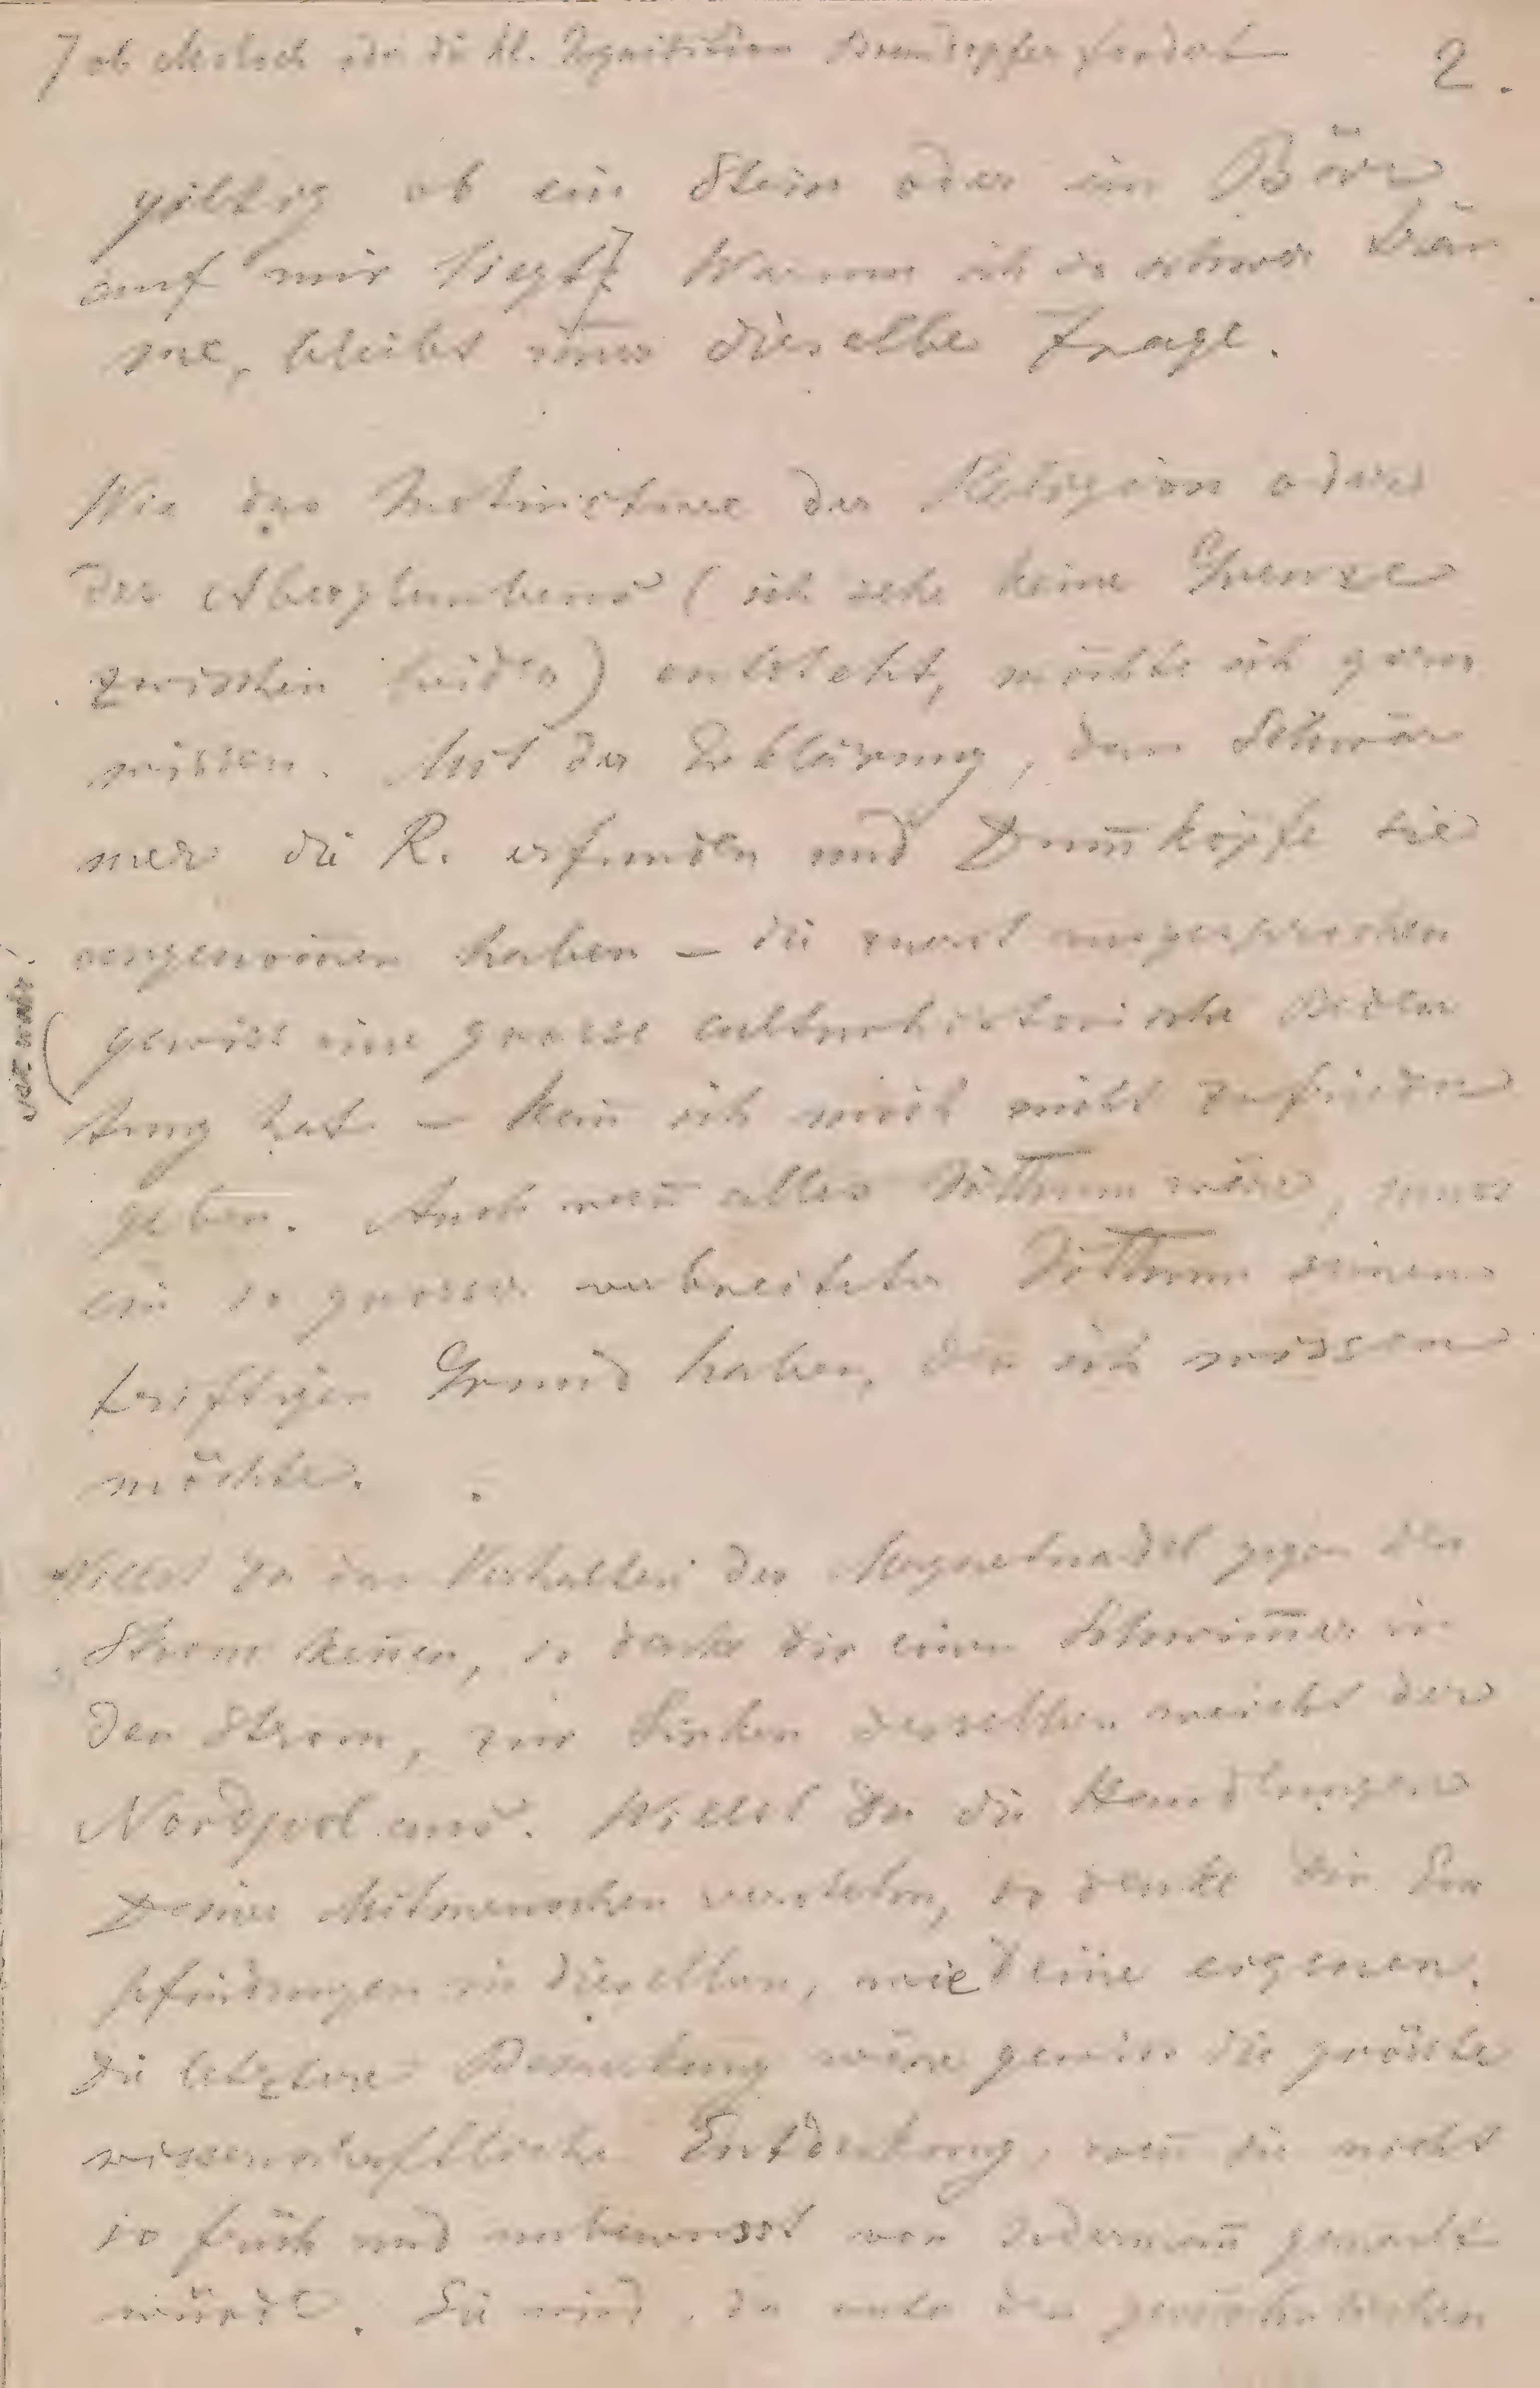 ⌉ ob Moloch oder die hl. Inquisition Brandopfer fordert
2.
giltig ob ein Stein oder ein Bär
auf mir liegt⌉ Warum ich so schwer träu
me, bleibt im̄er dieselbe Frage.
Wie das Instinctive der Religion oder
des Aberglaubens (ich sehe keine Grenze
zwischen beiden) entsteht, möchte ich gern
wissen. Mit der Erklärung, dass Schwär
mer die R. erfunden und Dum̄köpfe sie
angenom̄en haben – die zuerst ausgesprochen
gewiss eine grosse culturhistorische Bedeu
tung hat – kan̄ ich mich nicht zufrieden
geben. Auch wen̄ alles Irrthum wäre, muss
ein so grosser verbreiteter Irrthum seinen
triftigen Grund haben, den ich wissen
möchte.
Willst Du das Verhalten der Magnetnadel gegen den
Strom ken̄en, so denke dir einen Schwim̄er in
den Strom, zur Linken desselben weicht der
Nordpol aus. Willst Du die Handlungen
Deiner Mitmenschen verstehn, so denke Dir Em
pfindungen in dieselben, wie Deine eigenen.
Die letztere Bemerkung wäre gewiss die grösste
wissenschaftliche Entdeckung, wen̄ sie nicht
so früh und unbewusst von Jederman̄ gemacht
würde. Sie wird, da unter den gewöhnlichen